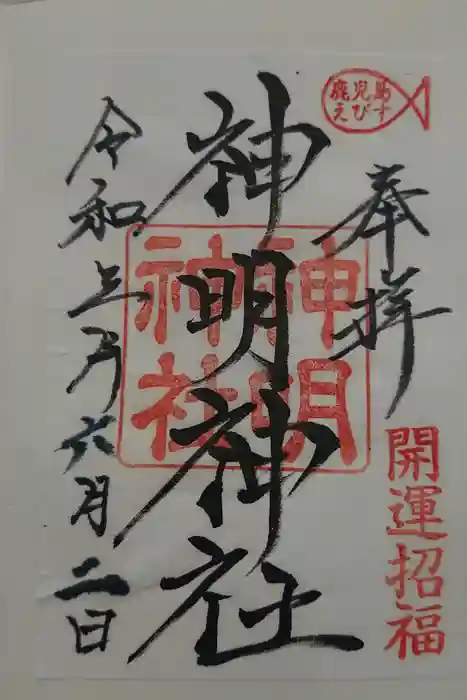 鹿児島
えびす
奉拝
開運招福
神明神社
神明
神社
令和五年六月二日